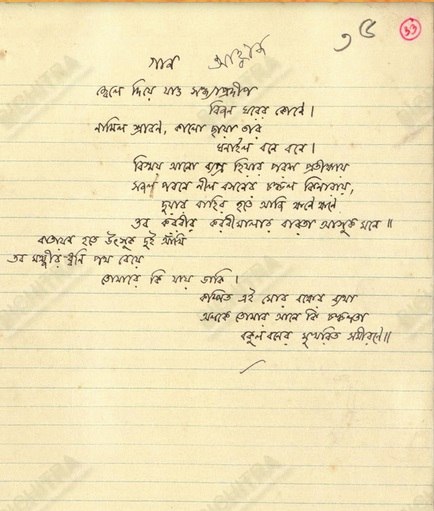 ৩৫ 33
গান আহ্বান
জ্বেলে দিয়ে যাও সন্ধ্যাপ্রদীপ
বিজন ঘরের কোণে।
নামিল শ্রাবণ, কালো ছায়া তার
ঘনাইল বনে বনে।
বিস্ময় আনো ব্যগ্র হিয়ার পরশ প্রতীক্ষায়
সজল পবনে নীল বসনের চঞ্চল কিনারায়,
দুয়ার বাহির হতে আজি ক্ষণে ক্ষণে
তব কবরীর করবীমালার বারতা আসুক মনে॥
বাতায়ন হতে উৎসুক দুই আঁখি
তব মঞ্জীর ধ্বনি পথ বেয়ে
তোমারে কি যায় ডাকি।
কম্পিত এই মোর বক্ষের ব্যথা
অলকে তোমার আনে কি চঞ্চলতা
বকুলবনের মুখরিত সমীরণে॥